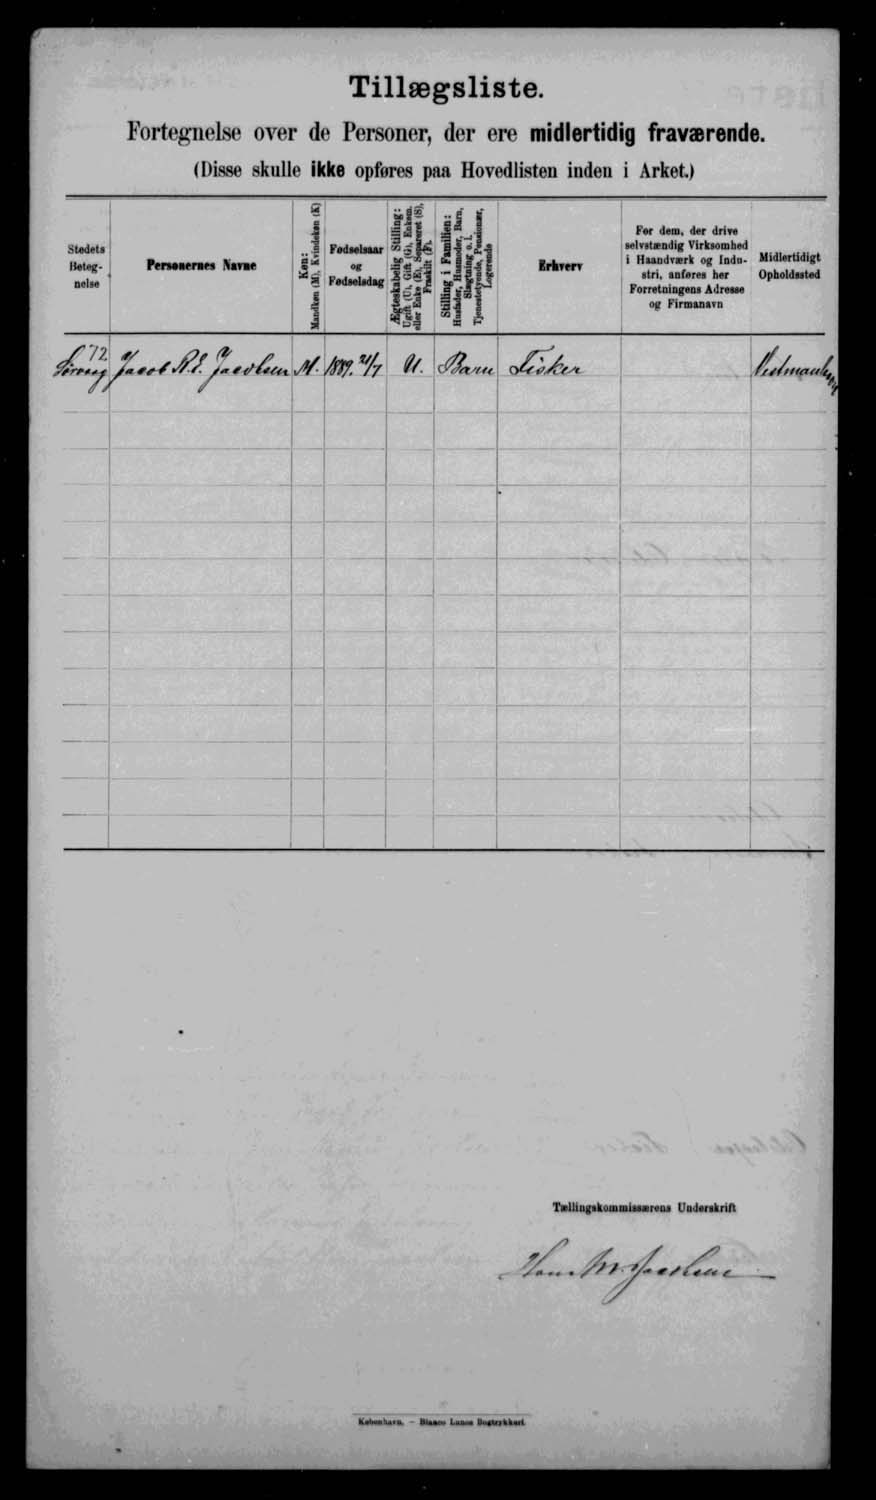 Tillægsliste.
Fortegnelse over de Personer, der ere midlertidig fraværende.
(Disse skulle ikke opføres paa Hovedlisten inden i Arket.)
Stedets Beteg-
nelse
Personernes Navne
Køn:
Mandkøn (M), Kvindekøn (K)
Fødselsaar
og
Fødselsdag
Ægteskabelig Stilling:
Ugift (U), Gift (G), Enkem.
eller Enke (E), Separeret (S),
Fraskilt (F).
Stilling i Familien:
Husfader, Husmoder, Barn,
Slægtning o. l.
Tjenestetyende, Pensionær,
Logerende
Erhverv
For dem, der drive
selvstændig Virksomhed
i Haandværk og Indu-
stri, anføres her
Forretningens Adresse
og Firmanavn
Midlertidigt
Opholdssted
72.
Sørvaag Jacob R. E. Jacobsen M. 1889. 21/7 U. Barn Fisker
Tællingskommissærens Underskrift
Hans M. Jacobsen
København. — Bianco Lunos Bogtrykkeri